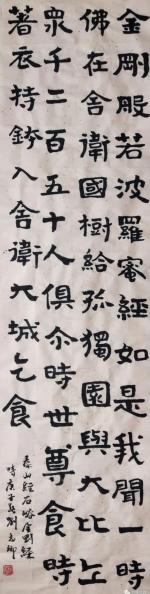 金剛般若波羅蜜經如是我聞一時
佛在舍衛國樹給孤獨園與大比丘
衆千二百五十人俱尒時世尊食時
著衣持鉢入舍衛大城乞食
泰山經石峪金剛經
時庚子